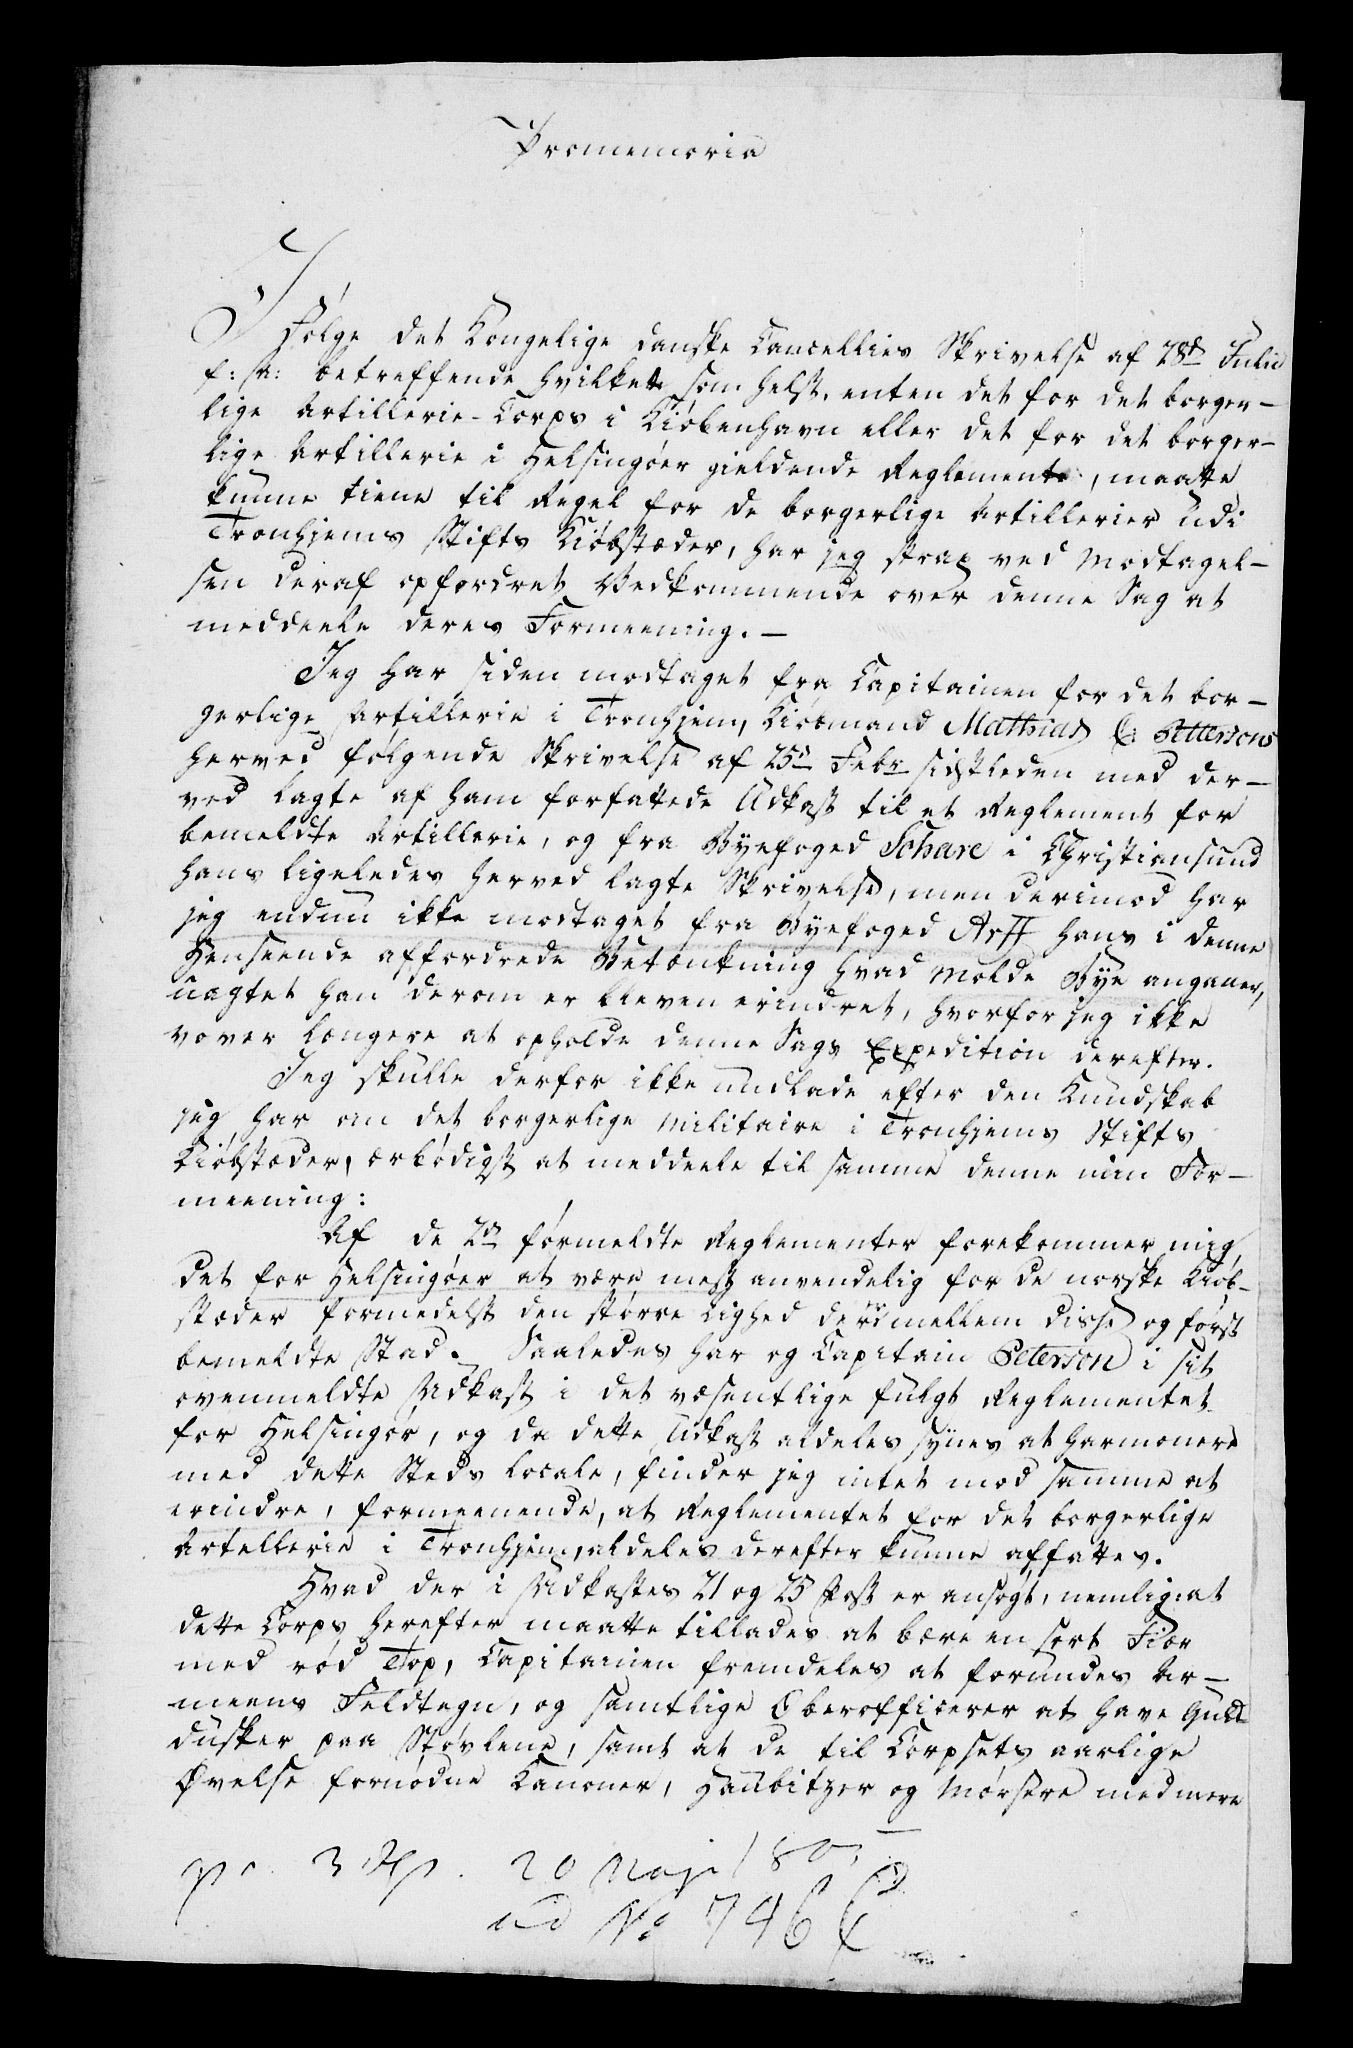 Promemoria
I Følge det Kongelige danske Cancellies Skrivelse af 28d Julii
f: a: betreffende hvilket som helst, enten det for det borger-
lige Artillerie-Corps i Kiøbenhavn eller det for det borger-
lige Artillerie i Helsingøer gieldende Reglement, maatte
kunne tiene til Regel for de borgerlige Artillerier udi
Tronhjems Stifts Kiøbstæder, har jeg strax ved Modtagel-
sen deraf opfordret Vedkommende over denne Sag at
meddeele deres Formeening. -
Jeg har siden modtaget fra Capitainen for det bor-
gerlige Artillerie i Tronhjem, Kiøbmand Mathias Pettersons
herved følgende Skrivelse af 25de Febr sidstleden med der-
ved lagte af ham forfattede Udkast til et Reglement for
bemeldte Artillerie, og fra Byefoged Schare i Christiansund
hans ligeledes herved lagte Skrivelse, men derimod har
jeg endnu ikke modtaget fra Byefoged Arff hans i denne
Henseende affordrede Betænkning hvad Molde Bye angaaer,
uagtet han derom er bleven erindret, hvorfor jeg ikke
vover længere at opholde denne Sags Expedition derefter.
Jeg skulle derfor ikke undlade efter den Kundskab
jeg har om det borgerlige Militaire i Tronhjems Stifts
Kiøbstæder, ærbødigst at meddeele til samme denne min For-
meening:
Af de 2de førmeldte Reglementer forekommer mig,
det for Helsingøer at være mest anvendelig for de norske Kiøb-
stæder formedelst den større Lighed derimellem disse og først
bemeldte Stad. Saaledes har og Capitain Peterson i sit
ovenmeldte Udkast i det væsentlige fulgt Reglementet
for Helsingør, og da dette Udkast aldeles synes at harmonere
med dette Steds Locale, finder jeg intet mod samme at
erindre, formeenende, at Reglementet for det borgerlige
Artellerie i Tronhjem, aldeles derefter kunne affattes.
Hvad der i Udkastes 21 og 25 Post er ansøgt, nemlig: at
dette Corps herefter maatte tillades at bære en sort Fier
med rød Top, Capitainen fremdeles at forundes Ar-
meens Feldtegn, og samtlige Oberofficerer at have Guld
dusker paa Støvlene, samt at de til Corpsets aarlige
Øvelse fornødne Canoner, Haubitzer og Mørsere med mere
20 Maji 180
ad No 746